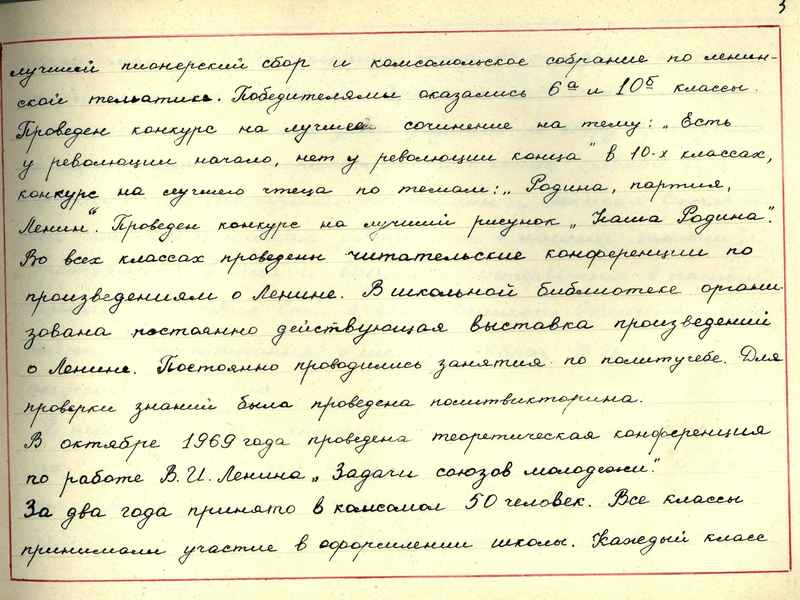 3
лучший пионерский сбор и комсомольское собрание по ленин-
ской тематике. Победителями оказались 6а и 10б классы.
Проведен конкурс на лучшее сочинение на тему: „Есть
у революции начало, нет у революции конца" в 10-х классах,
конкурс на лучшего чтеца по темам: „Родина, партия,
Ленин". Проведен конкурс на лучший рисунок „Наша Родина".
Во всех классах проведены читательские конференции по
произведениям о Ленине. В школьной библиотеке органи-
зована постоянно действующая выставка произведений
о Ленине. Постоянно проводились занятия по политучебе. Для
проверки знаний была проведена политвикторина.
В октябре 1969 года проведена теоретическая конференция
по работе В.И. Ленина „Задачи союзов молодежи".
За два года принято в комсомол 50 человек. Все классы
принимали участие в оформлении школы. Каждый класс